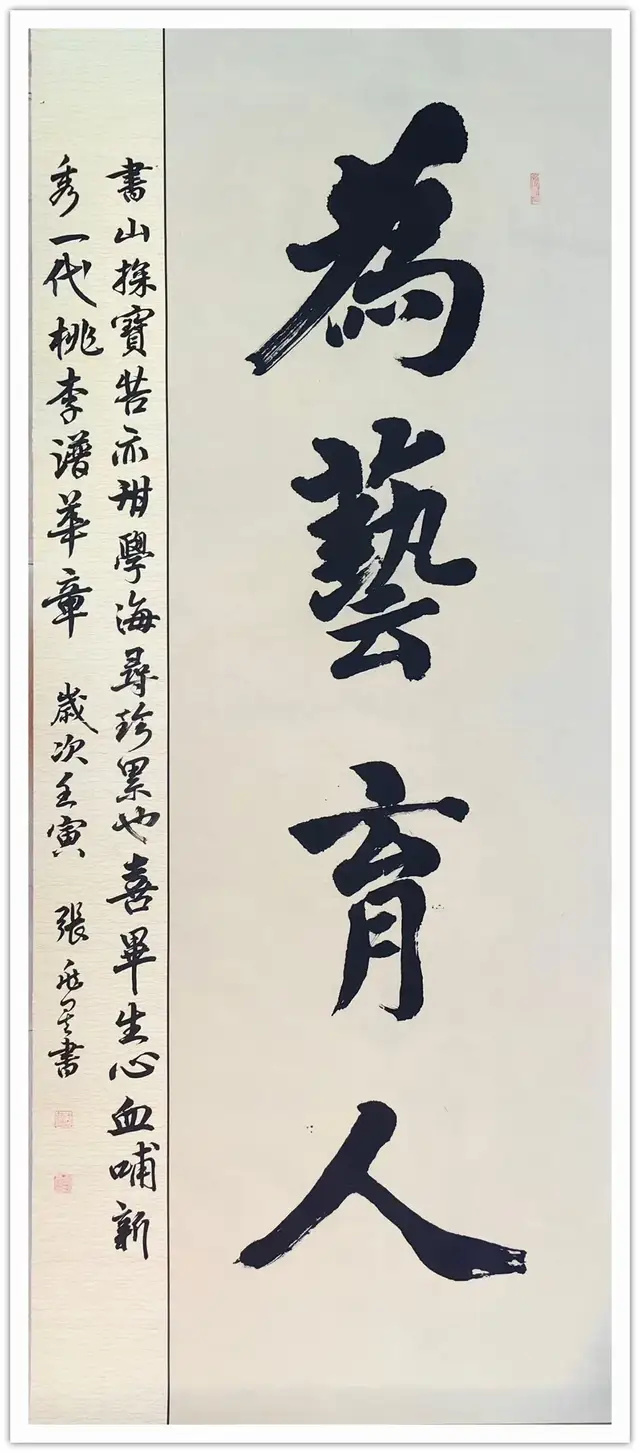 為藝育人
書山探寶苦亦甜學海尋珍累也喜畢生心血哺新
秀一代桃李譜華章 歲次壬寅 張 書